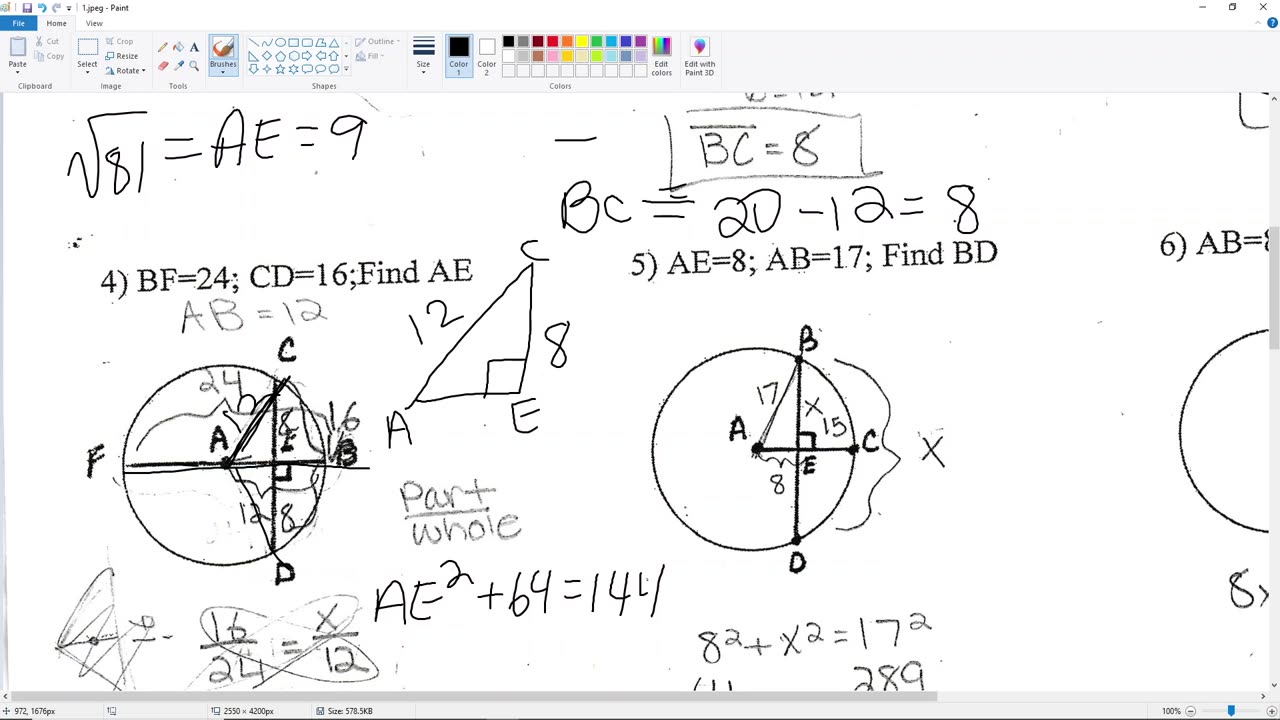 1.jpeg - Paint
File Home View
Paste
Cut
Copy
Clipboard
Select
Crop
Resize
Rotate
Image
A
Tools
Brushes
Outline
Fill
Shapes
Size
Color 1
Color 2
Edit colors
Colors
Edit with Paint 3D
√81 = AE = 9
BC = 8
BC = 20 - 12 = 8
4) BF=24; CD=16;Find AE
AB = 12
C
12
8
A
E
C
24
16
8
A
E
F
B
12
8
D
part
whole
AE² + 64 = 144
16/24 = x/12
5) AE=8; AB=17; Find BD
B
17
x
15
A
C
E
8
X
D
8² + x² = 17²
289
6) AB=8
8x
972, 1676px
2550 × 4200px
Size: 578.5KB
100%